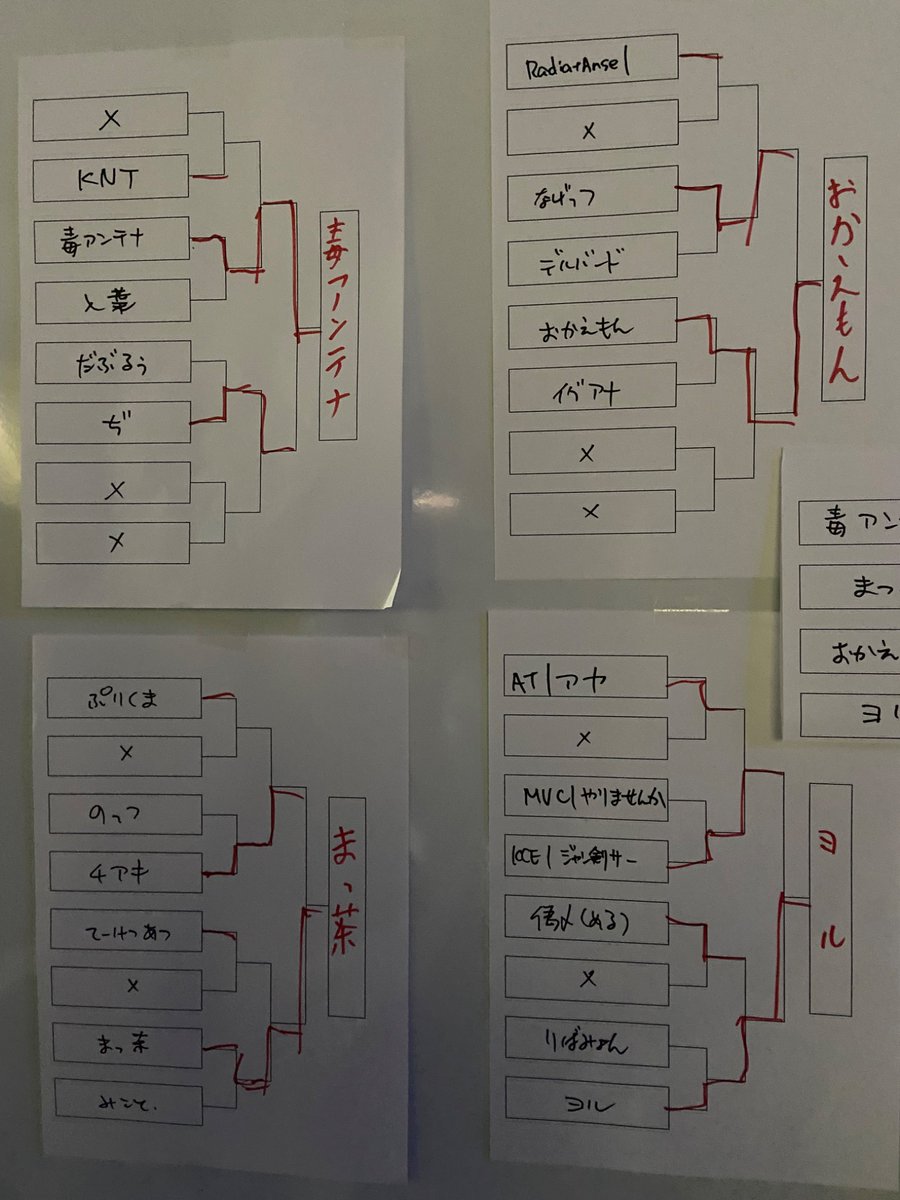 ×
KNT
毒アンテナ
だぶるぅ
ぢ
×
×
毒アンテナ
Radiant Ansel
×
なげっつ
デルバード
おかえもん
イグアナ
×
×
おかえもん
毒アン
まっ
おかえ
ヨル
ぷりくま
×
のっつ
チアキ
てーけつあつ
×
まっ茶
みこと.
まっ茶
AT|アヤ
×
MVC|やりませんか
ジャン剣サー
×
りばみょん
ヨル
ヨル